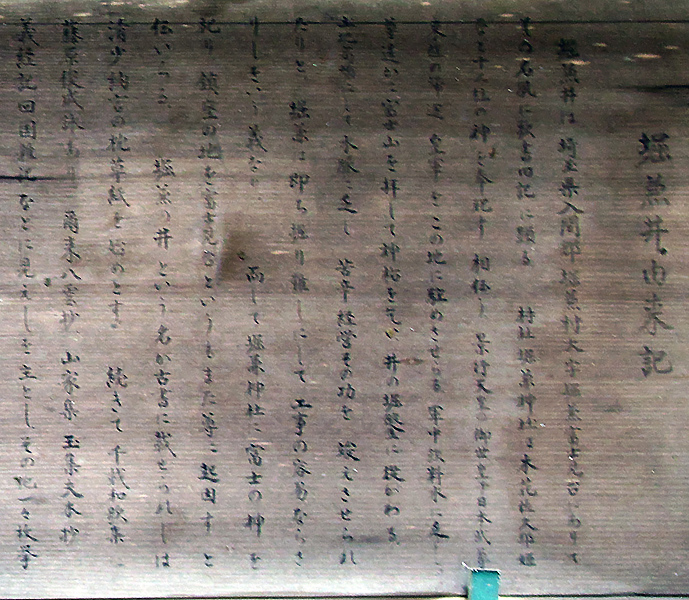 堀兼井由来記
堀兼井は 埼玉県入間郡堀兼村大字堀兼富士見台にありて
その名夙に歌書旧記に顕る 村社堀兼神社は木花佐久夜姫
など 社の神を奉祀す 相伝う 景行天皇の御世皇子日本武尊
東征の 皇軍をこの地に駐めさせらる 軍中飲料水に乏し
富士山を拝して神 を乞い 井の堀 に従わる
にして水脈に乏し 苦辛経営その功を 竣えさせられ
たりと 堀兼は即ち堀り難しにして 工事の容易ならざ
りしをいう義なり 而して堀兼神社に富士の神を
祀り 鎮座の地を富士見台というもまた 起因すと
伝いつる 堀兼の井 という名が古書に載せられしは
清少納言の枕草紙を始めとする 続きて 千載和歌集
藤原俊成 あり 爾来八雲抄 山家集 玉集 夫木抄
義経記回国雑記などに見えしを主としその他一々枚挙